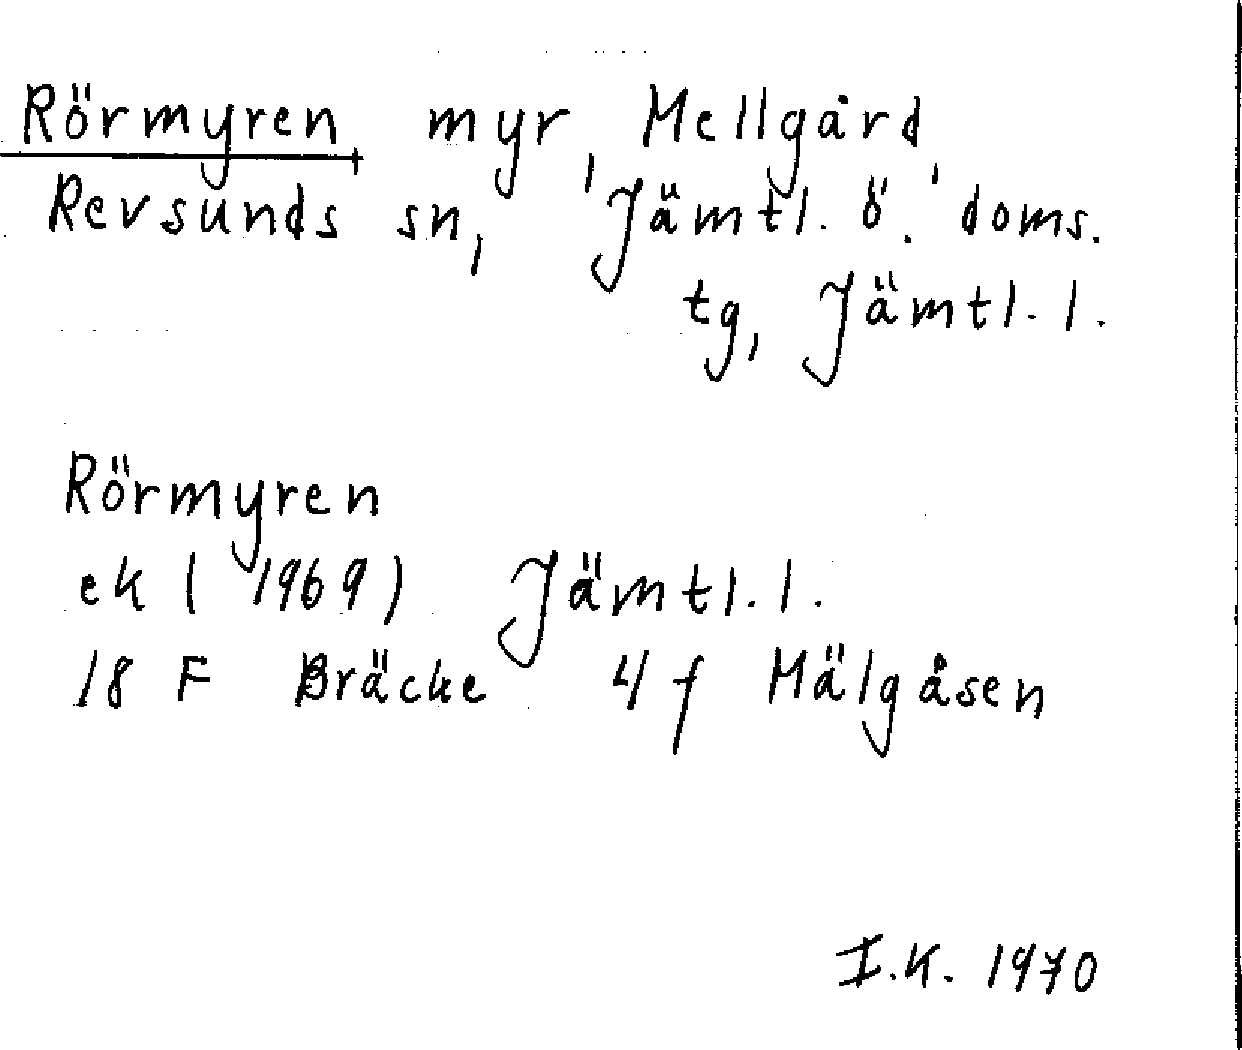 Rörmyren, myr, Mellgård,
Revsunds sn, Jämtl. ö. doms.
tg, Jämtl. l.
Rörmyren
ek (1969) Jämtl. l.
18 F Bräcke 4 f Mälgåsen
I.K. 1970